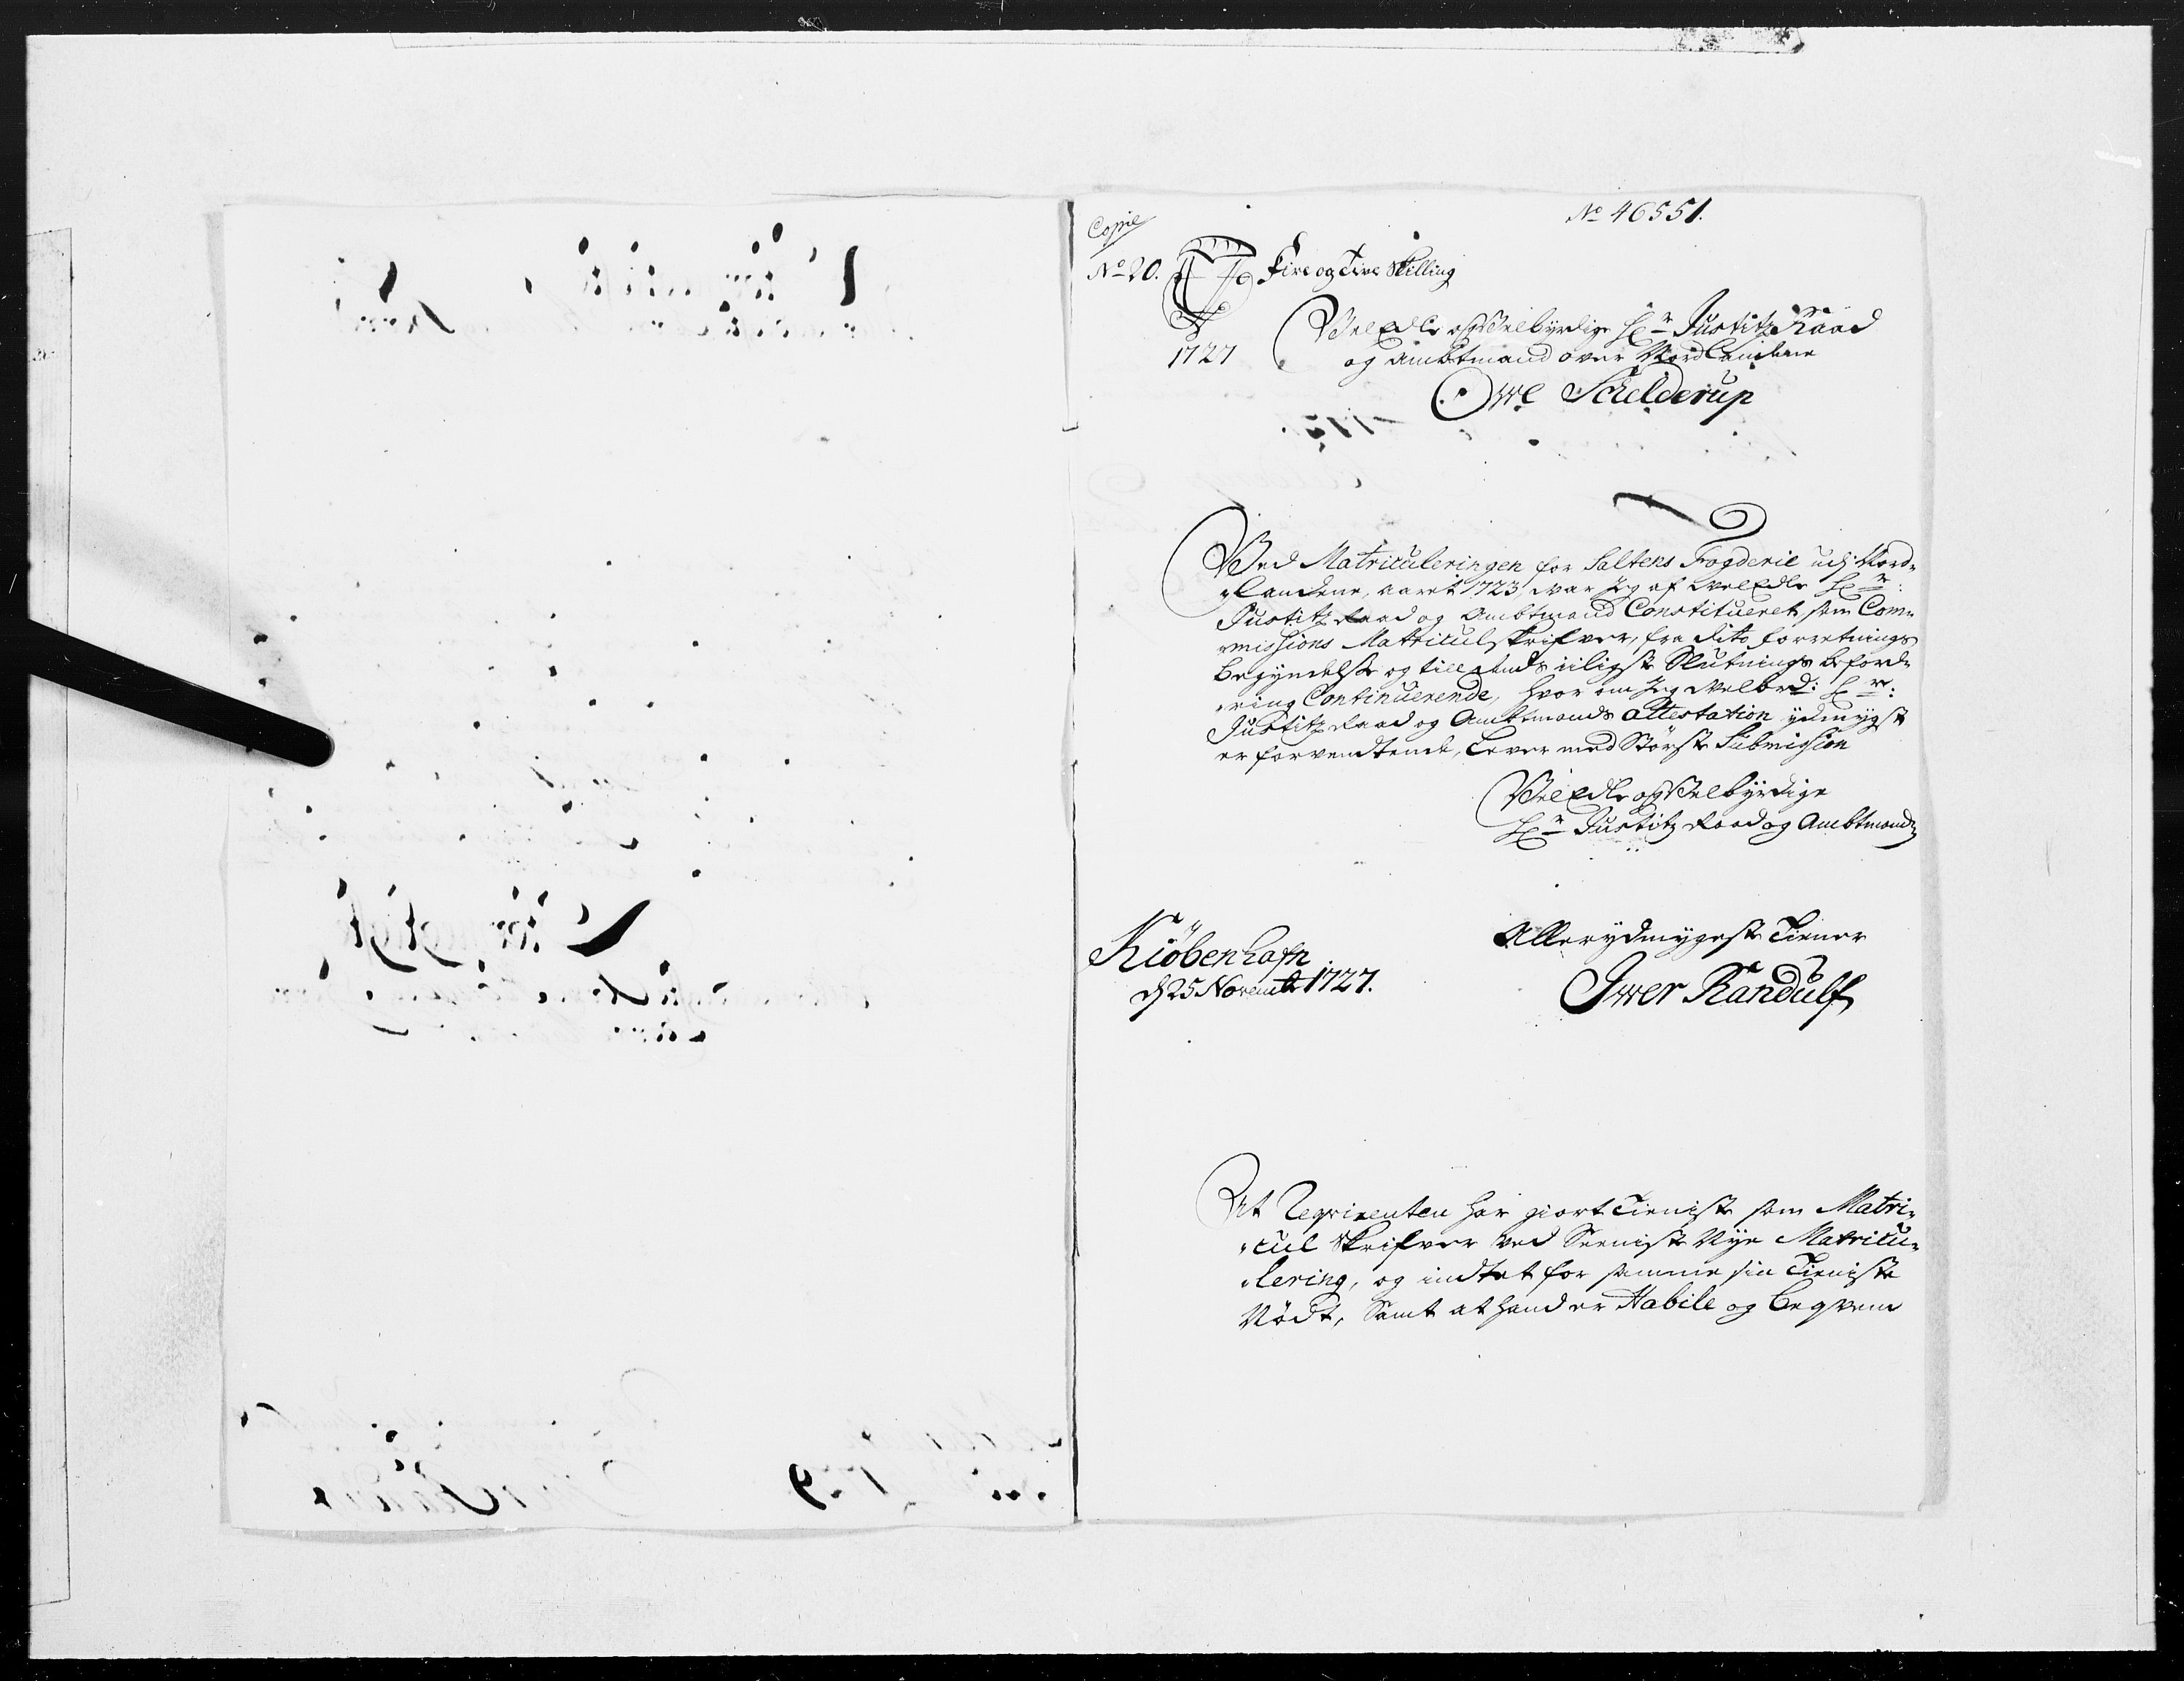 Copie
No 46551.
No 20. Fire og Tive Skilling
1727
VelEdle og Velbyrdige Hr Justitz Raad
og Ambtmand over Nordlandene
Owe Schelderup
Ved Matriculeringen for Saltens Fogderie udj Nord-
landene, aaret 1723 war Jeg af WelEdle Hr:
Justitz Raad og Ambtmand Constitueret som Com-
missions Matriculskrifver, fra dito forretnings
begyndelse og till dends iiligste Slutnings beford-
ring Continuerende, hvorom Jeg Welbrd: Hr:
Justitz Raad og Ambtmands attestation ydmygst
er forvendtende, lever med Störste Submission
VelEdle og Velbyrdige
Hr Justitz Raad og Ambtmands
Kiöbenhafn
d 25 Novembr 1727.
Allerydmygeste Tiener
Iwer Randulf
At Reqvirenten har giort Tieniste som Matri-
cul Skrifver ved Seeniste Nye Matricu-
lering, og indtet for samme sin Tieniste
Nödt, Samt at hand er Habile og beqvem